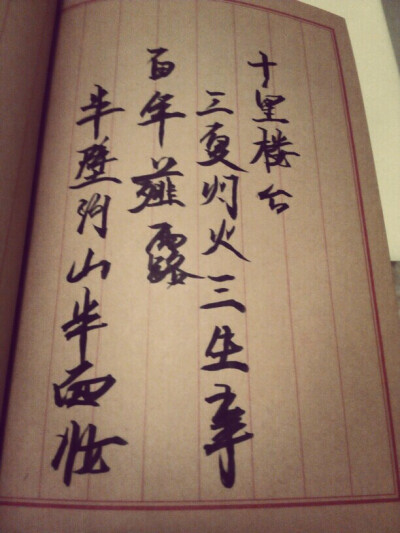 十里楼台
三更灯火三生
百年薤露
半壁河山半面妆